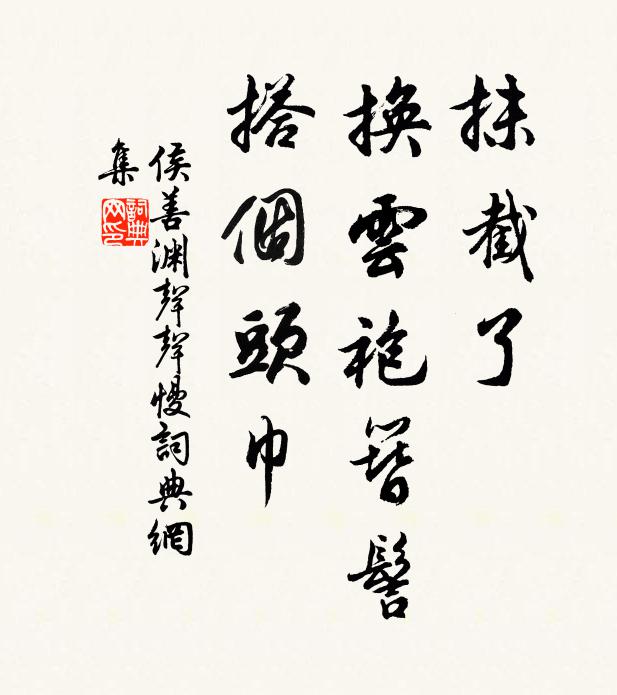 抹截了
換雲袍簪髻
搭個頭巾
侯善渊聲聲慢詞典網
集
詞典
网印